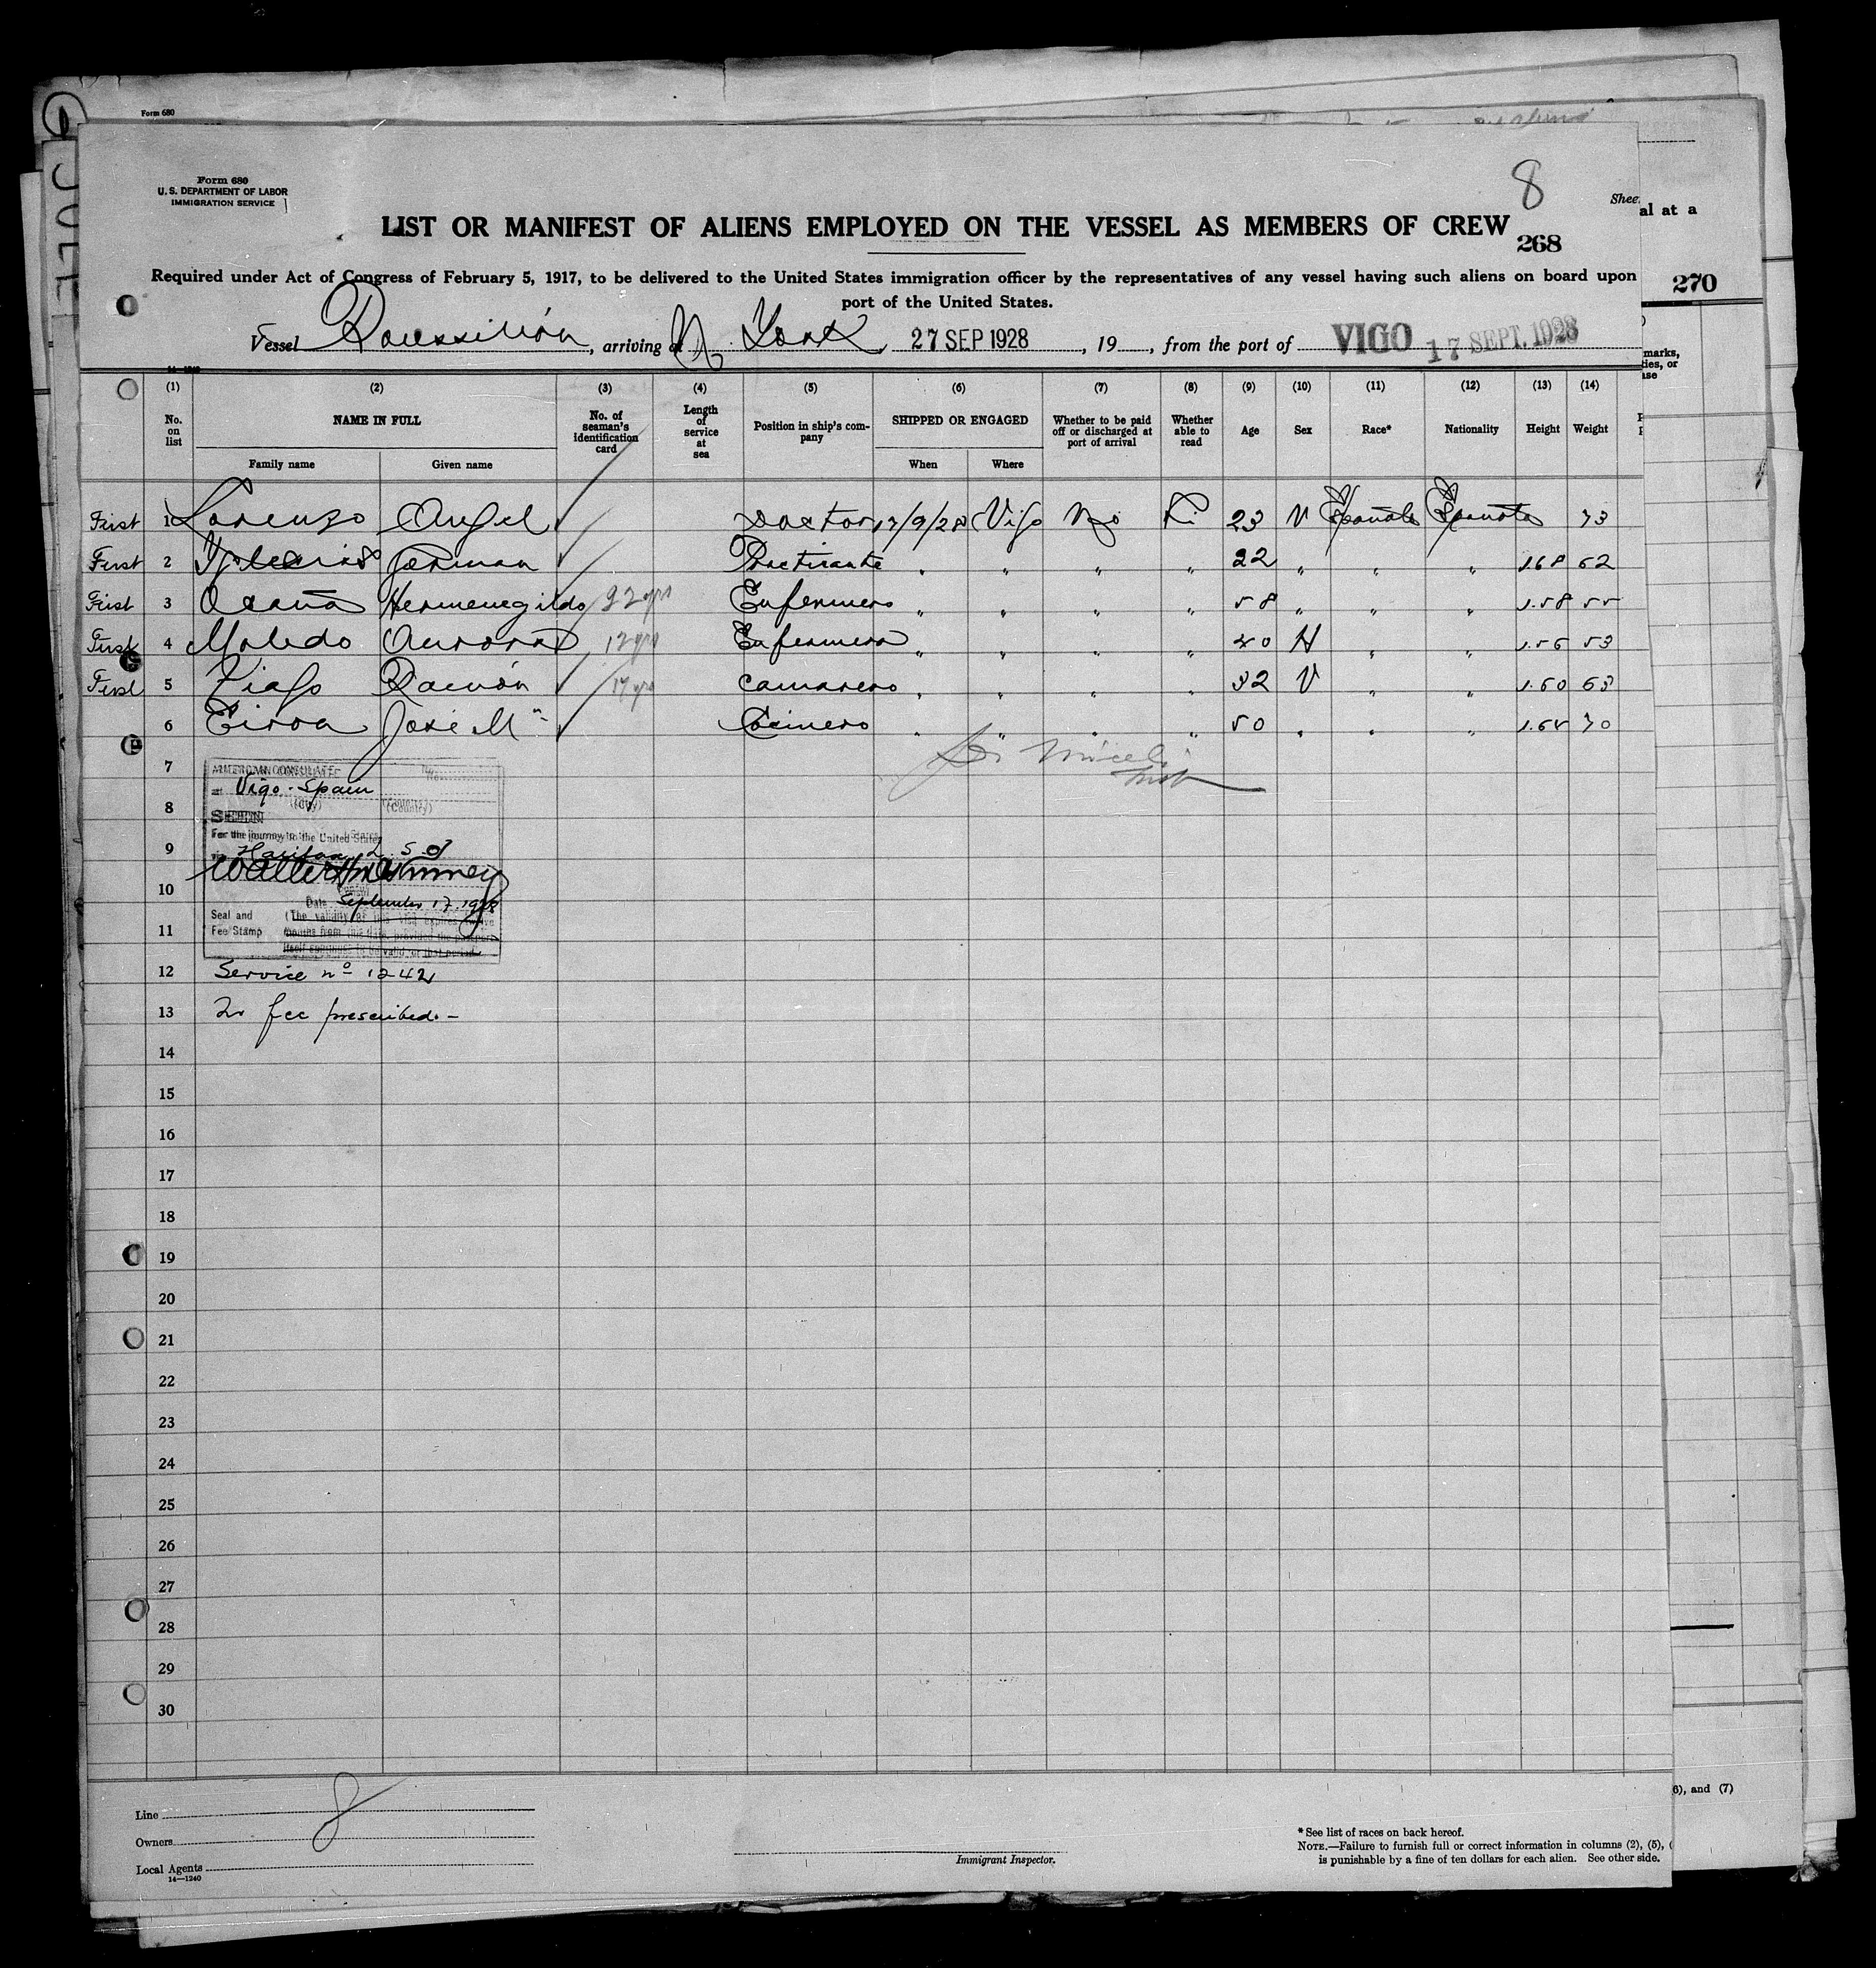 Form 680
Form 680
U. S. DEPARTMENT OF LABOR
IMMIGRATION SERVICE
8
Shee
al at a
LIST OR MANIFEST OF ALIENS EMPLOYED ON THE VESSEL AS MEMBERS OF CREW
268
270
Required under Act of Congress of February 5, 1917, to be delivered to the United States immigration officer by the representatives of any vessel having such aliens on board upon
port of the United States.
Vessel Roussillón, arriving at N. York, 27 SEP 1928, 19 , from the port of VIGO 17 SEPT. 1928
(1) (2) (3) (4) (5) (6) (7) (8) (9) (10) (11) (12) (13) (14)
No. on list NAME IN FULL No. of seaman's identification card Length of service at sea Position in ship's company SHIPPED OR ENGAGED Whether to be paid off or discharged at port of arrival Whether able to read Age Sex Race* Nationality Height Weight
Family name Given name When Where
First 1 Lorenzo Angel Doctor 17/9/28 Vigo No 23 V Española Española 73
First 2 Yglesias German Practicante " " " " 22 " " " 1.68 62
First 3 Ocaña Hermenegildo 22 yrs Enfermero " " " " 58 " " " 1.58 55
First 4 Moledo Aurora 12 yrs Enfermera " " " " 40 H " " 1.56 53
First 5 Ramón 17 yrs Camarero " " " " 32 V " " 1.60 63
6 Eiroa José Mª Cocinero " " " " 50 " " " 70
7
AMERICAN CONSULATE
at Vigo - Spain
(City) (Country)
8
SEEN
For the journey to the United States
9
Halifax
10
Date September 17, 1928
Seal and
Fee Stamp
(The validity of this visa expires twelve
11
months from this date, provided the passport
itself continues to be valid for that period.
12 Service nº 1242
13 No fee prescribed.-
14
15
16
17
18
19
20
21
22
23
24
25
26
27
28
29
30
6), and (7)
Line
8
Owners
Local Agents
14—1240
Immigrant Inspector.
* See list of races on back hereof.
NOTE.—Failure to furnish full or correct information in columns (2), (5), (
is punishable by a fine of ten dollars for each alien. See other side.